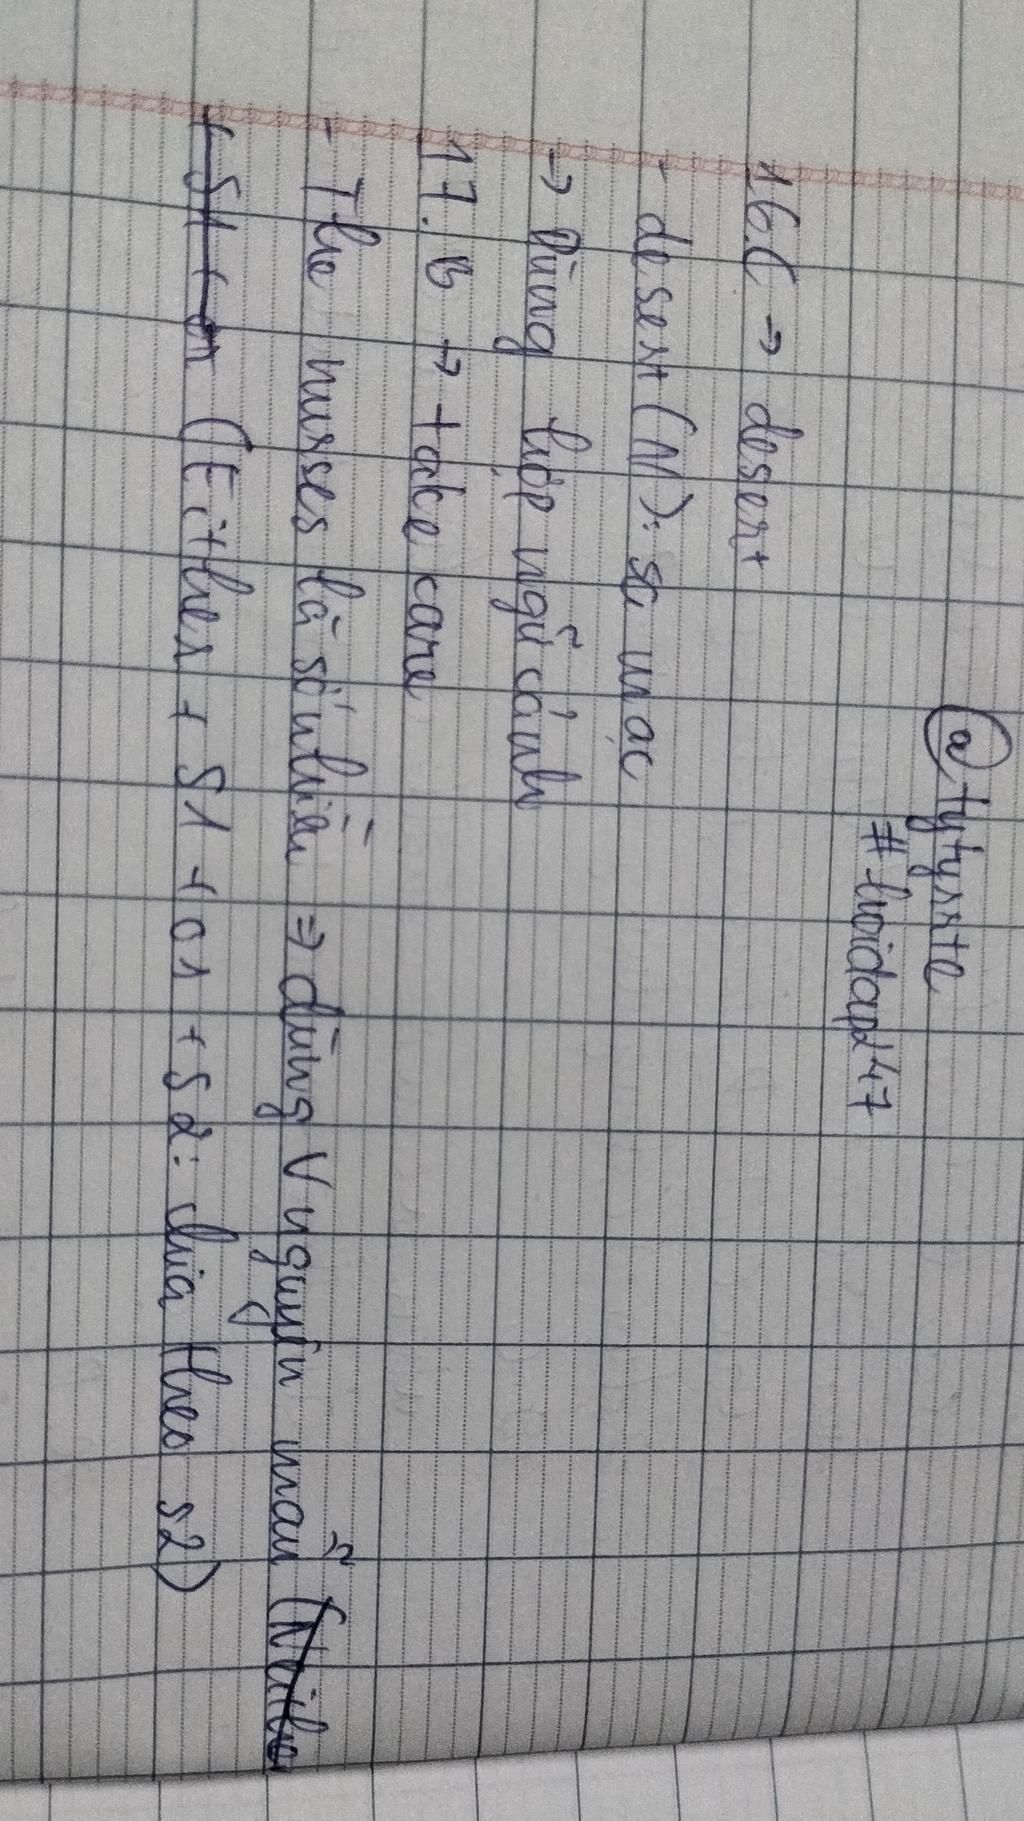 @tytyrrte
#hoidap247
16.C → desert
- desert (N): sa mạc
→ Dùng hợp ngữ cảnh
17. B → take care
- The nurses là số nhiều => dùng V nguyên mẫu (Neithe
+ S1 + or (Either + S1 + or + S2: chia theo s2)